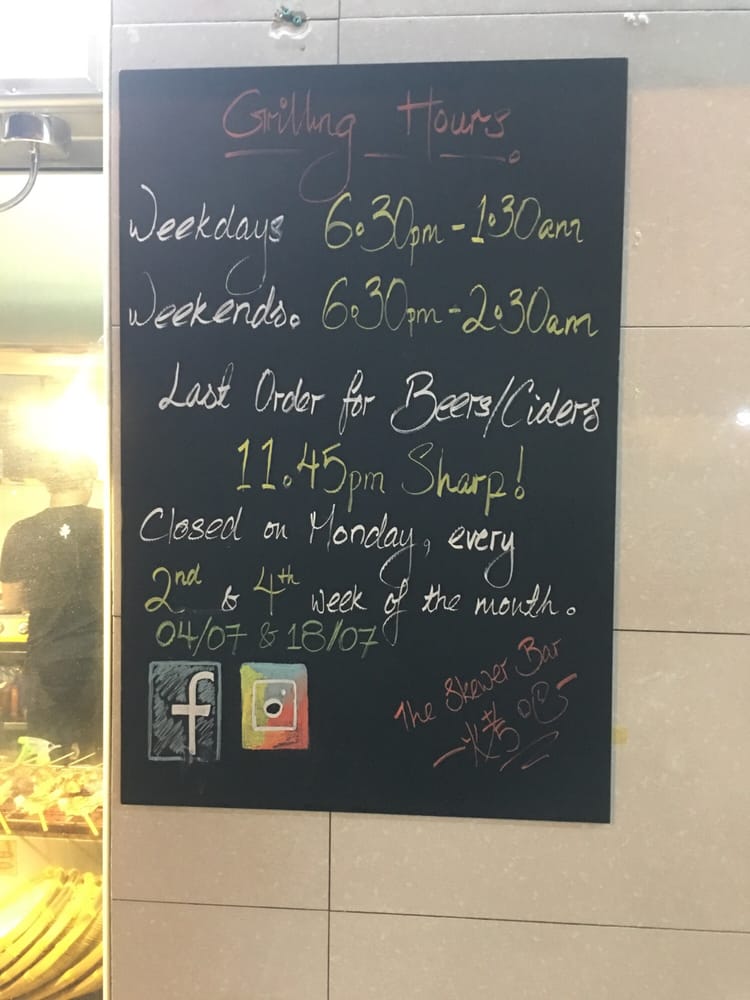 Grilling Hours
Weekdays 6.30pm - 1.30am
Weekends. 6.30pm - 2.30am
Last Order for Beers/Ciders
11.45pm Sharp!
Closed on Monday, every
2nd & 4th week of the month.
04/07 & 18/07
f
The Skewer Bar
烧吧